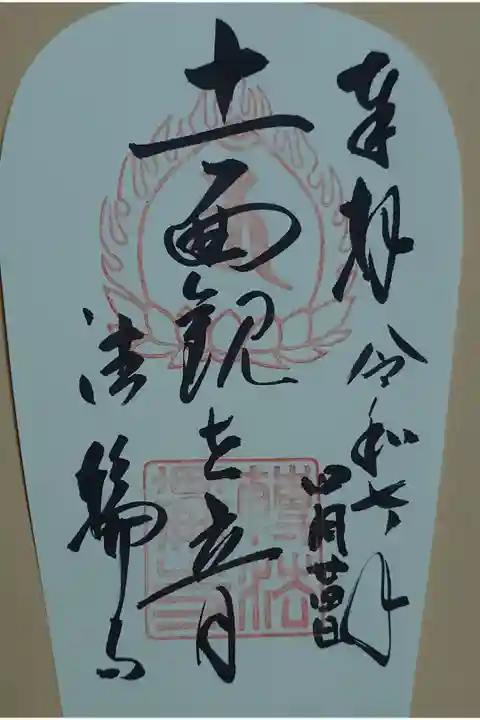 奉拝 令和七年
四月廿四日
十一面観世音
法輪寺